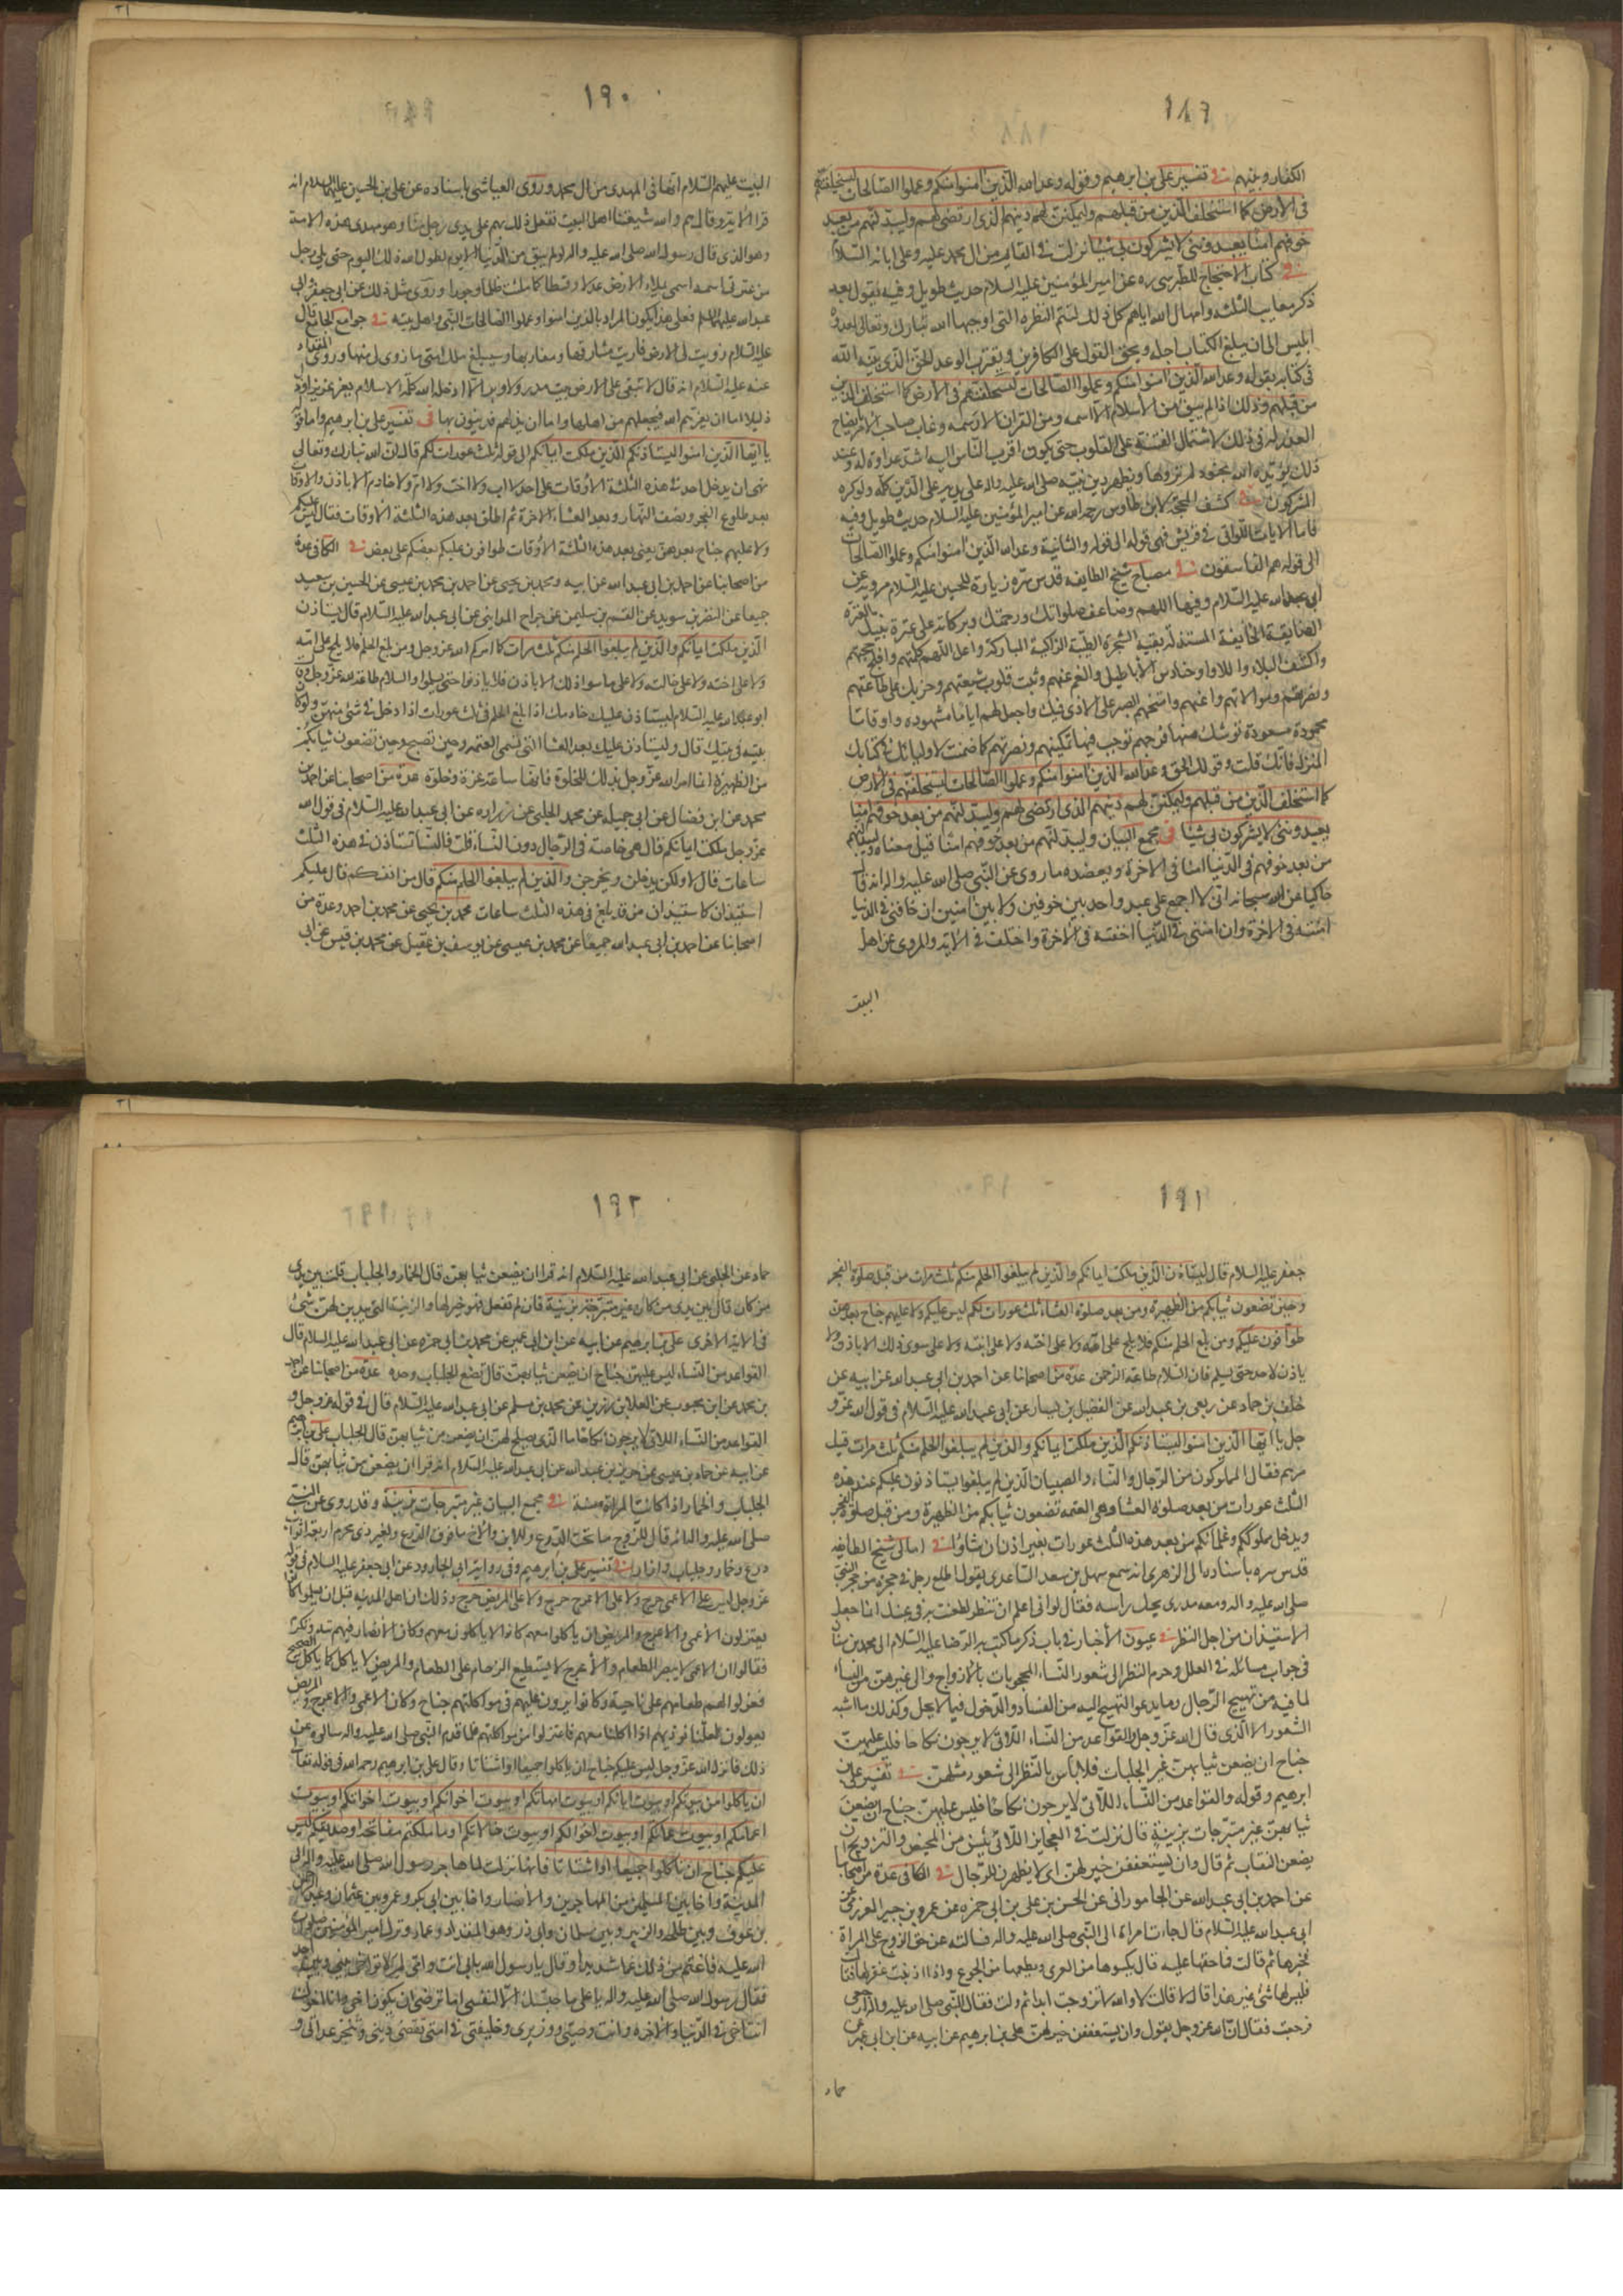 ١٨٩
الكفار وبينهم في تفسير علي بن ابرهيم وقوله وعد الله الذين امنوا منكم وعملوا الصالحات ليستخلفنهم
في الارض كما استخلف الذين من قبلهم وليمكنن لهم دينهم الذي ارتضى لهم وليبدلنهم من بعد
خوفهم امنا يعبدونني لا يشركون بي شيئا نزلت في القايم من ال محمد عليه وعلى ابائه السلام
في كتاب الاحتجاج للطبرسي ره عن امير المؤمنين عليه السلام حديث طويل وفيه يقول بعد
ذكر معايب الثلثة وامهال الله اياهم كل ذلك لتتم النظرة التي اوجبها الله تبارك وتعالى لعدوه
ابليس الى ان يبلغ الكتاب اجله ويحق القول على الكافرين ويقترب الوعد الحق الذي بينه الله
في كتابه بقوله وعد الله الذين امنوا منكم وعملوا الصالحات ليستخلفنهم في الارض كما استخلف الذين
من قبلهم وذلك اذا لم يبق من الاسلام الا اسمه ومن القران الا رسمه وغاب صاحب الامر بايضاح
العذر له في ذلك لاشتمال الفتنة على القلوب حتى يكون اقرب الناس اليه اشد عداوة له وعند
ذلك يؤيده الله بجنود لم تروها ويظهر دين نبيه صلى الله عليه واله على يديه على الدين كله ولو كره
المشركون في كشف المحجة لابن طاوس رحمه الله عن امير المؤمنين عليه السلام حديث طويل وفيه
فاما الايات اللواتي في قريش فهي قوله الى قوله والثانية وعد الله الذين امنوا منكم وعملوا الصالحات
الى قوله هم الفاسقون في مصباح شيخ الطايفه قدس سره زيارة للحسين عليه السلام مروية عن
ابي عبد الله عليه السلام وفيها اللهم وضاعف صلواتك ورحمتك وبركاته على عترة نبيك العترة
الضايعة الخايفة المستذلة بقية الشجرة الطيبة الزاكية المباركة واعل اللهم كلمتهم وافلج حجتهم
واكشف البلاء واللاواء وحنادس الاباطيل والغم عنهم وثبت قلوب شيعتهم وحزبك على طاعتهم
ونصرتهم وموالاتهم واعنهم وامنحهم الصبر على الاذى فيك واجعل لهم اياما مشهودة واوقاتا
محمودة مسعودة توشك منها فرجهم توجب فيها تمكينهم ونصرتهم كما ضمنت لاوليائك في كتابك
المنزل فانك قلت وقولك الحق وعد الله الذين امنوا منكم وعملوا الصالحات ليستخلفنهم في الارض
كما استخلف الذين من قبلهم وليمكنن لهم دينهم الذي ارتضى لهم وليبدلنهم من بعد خوفهم امنا
يعبدونني لا يشركون بي شيئا في مجمع البيان وليبدلنهم من بعد خوفهم امنا قيل معناه وليبدلنهم
من بعد خوفهم في الدنيا امنا في الاخرة ويعضده ما روى عن النبي صلى الله عليه واله انه قال
حاكيا عن الله سبحانه اني لا اجمع على عبد واحد بين خوفين ولا بين امنين ان خافني في الدنيا
امنته في الاخرة وان امنني في الدنيا اخفته في الاخرة واختلف في الاية والمروى عن اهل
البيت
١٩٠
البيت عليهم السلام انها في المهدي من ال محمد وروى العياشي باسناده عن علي بن الحسين عليهما السلام انه
قرا الاية وقال هم والله شيعتنا اهل البيت نفعل ذلك بهم على يدي رجل منا وهو مهدي هذه الامة
وهو الذي قال رسول الله صلى الله عليه واله لو لم يبق من الدنيا الا يوم لطول الله ذلك اليوم حتى يلي رجل
من عترتي اسمه اسمي يملاء الارض عدلا وقسطا كما ملئت ظلما وجورا وروى مثل ذلك عن ابي جعفر وابي
عبد الله عليهما السلم فعلى هذا يكون المراد بالذين امنوا وعملوا الصالحات النبي واهل بيته في جوامع الجامع قال
عليه السلام زويت لي الارض فاريت مشارقها ومغاربها وسيبلغ ملك امتي ما زوى لي منها وروى المقداد
عنه عليه السلام انه قال لا تبقى على الارض بيت مدر ولا وبر الا ادخله الله كلمة الاسلام بعز عزيز او ذل
ذليل اما ان يعزهم الله فيجعلهم من اهلها واما ان يذلهم فيدينون بها في تفسير علي بن ابرهيم واما قوله
يا ايها الذين امنوا ليستاذنكم الذين ملكت ايمانكم الى قوله ثلث عورات لكم قال ان الله تبارك وتعالى
نهى ان يدخل احد في هذه الثلثة الاوقات على احد لا اب ولا اخت ولا ام ولا خادم الا باذن والاوقات
بعد طلوع الفجر ونصف النهار وبعد العشاء الاخرة ثم اطلق بعد هذه الثلثة الاوقات فقال ليس عليكم
ولا عليهم جناح بعدهن يعني بعد هذه الثلثة الاوقات طوافون عليكم بعضكم على بعض في الكافي عدة
من اصحابنا عن احمد بن ابي عبد الله عن ابيه ومحمد بن يحيى عن احمد بن محمد بن عيسى عن الحسين بن سعيد
جميعا عن النضر بن سويد عن القسم بن سليمن عن جراح المدايني عن ابي عبد الله عليه السلام قال يستاذن
الذين ملكت ايمانكم والذين لم يبلغوا الحلم منكم ثلث مرات كما امركم الله عز وجل ومن بلغ الحلم فلا يلج على امه
ولا على اخته ولا على خالته ولا على ما سوا ذلك الا باذن فلا ياذنوا حتى يسلموا والسلام طاعة لله عز وجل
ابو عبد الله عليه السلام ليستاذن عليك خادمك اذا بلغ الحلم في ثلث عورات اذا دخل في شئ منهن ولو كان
بيته في بيتك قال وليستاذن عليك بعد العشا التي تسمى العتمه وحين تصبح وحين تضعون ثيابكم
من الظهيرة انما امر الله عز وجل بذلك للخلوة فانها ساعة عزة وخلوة عدة من اصحابنا عن احمد بن
محمد عن ابن فضال عن ابي جميله عن محمد الحلبي عن زراره عن ابي عبد الله عليه السلام في قول الله
عز وجل ملكت ايمانكم قال هي خاصة في الرجال دون النساء قلت فالنساء تستاذن في هذه الثلث
ساعات قال لا ولكن يدخلن ويخرجن والذين لم يبلغوا الحلم منكم قال من انفسكم قال عليكم
استيذان كاستيذان من قد بلغ في هذه الثلث ساعات محمد بن يحيى عن محمد بن احمد وعدة من
اصحابنا عن احمد بن ابي عبد الله جميعا عن محمد بن عيسى عن يوسف بن عقيل عن محمد بن قيس عن ابي
١٩١
جعفر عليه السلام قال ليستاذن الذين ملكت ايمانكم والذين لم يبلغوا الحلم منكم ثلث مرات من قبل صلوة الفجر
وحين تضعون ثيابكم من الظهيرة ومن بعد صلوة العشاء ثلث عورات لكم ليس عليكم ولا عليهم جناح بعدهن
طوافون عليكم ومن بلغ الحلم منكم فلا يلج على امه ولا على اخته ولا على ابنته ولا على سوى ذلك الا باذن ولا
ياذن لاحد حتى يسلم فان السلام طاعة الرحمن عدة من اصحابنا عن احمد بن ابي عبد الله عن ابيه عن
خلف بن حماد عن ربعي بن عبد الله عن الفضيل بن يسار عن ابي عبد الله عليه السلام في قول الله عز و
جل يا ايها الذين امنوا ليستاذنكم الذين ملكت ايمانكم والذين لم يبلغوا الحلم منكم ثلث مرات قيل
من هم فقال المملوكون من الرجال والنساء والصبيان الذين لم يبلغوا يستاذنون عليكم عند هذه
الثلث عورات من بعد صلوة العشاء وهي العتمه تضعون ثيابكم من الظهيرة ومن قبل صلوة الفجر
ويدخل مملوككم وغلمانكم من بعد هذه الثلث عورات بغير اذن ان شاؤا في امالي شيخ الطايفه
قدس سره باسناده الى الزهري انه سمع سهل بن سعد الساعدي يقول اطلع رجل في حجرة من حجر النبي
صلى الله عليه واله ومعه مدرى يحك راسه فقال لو اني اعلم ان تنظر لطعنت به في عينك انما جعل
الاستيذان من اجل النظر في عيون الاخبار في باب ذكر ما كتب به الرضا عليه السلام الى محمد بن سنان
في جواب مسائله في العلل وحرم النظر الى شعور النساء المحجوبات بالازواج والى غيرهن من النساء
لما فيه من تهييج الرجال وما يدعو التهييج اليه من الفساد والدخول فيما لا يحل وكذلك ما اشبه
الشعور الا الذي قال الله عز وجل والقواعد من النساء اللاتي لا يرجون نكاحا فليس عليهن
جناح ان يضعن ثيابهن غير الجلباب فلا باس بالنظر الى شعور مثلهن في تفسير علي بن
ابرهيم وقوله والقواعد من النساء اللاتي لا يرجون نكاحا فليس عليهن جناح ان يضعن
ثيابهن غير متبرجات بزينة قال نزلت في العجايز اللاتي يئسن من المحيض والتزويج ان
يضعن النقاب ثم قال وان يستعففن خير لهن اي لا يظهرن للرجال في الكافي عدة من اصحابنا
عن احمد بن ابي عبد الله عن الجاموراني عن الحسن بن علي بن ابي حمزه عن عمرو بن جبير العزرمي عن
ابي عبد الله عليه السلام قال جاءت امراءة الى النبي صلى الله عليه واله فسالته عن حق الزوج على المراة
فخبرها ثم قالت فما حقها عليه قال يكسوها من العرى ويطعمها من الجوع واذا اذنبت غفر لها فقالت
فليس لها شئ غير هذا قال لا قالت لا والله لا تزوجت ابدا ثم ولت فقال النبي صلى الله عليه واله ارجعي
فرجعت فقال ان الله عز وجل يقول وان يستعففن خير لهن علي بن ابرهيم عن ابيه عن ابن ابي عمير عن
حماد
١٩٢
حماد عن الحلبي عن ابي عبد الله عليه السلام انه قرا ان يضعن ثيابهن قال الخمار والجلباب قلت بين يدي
من كان قال بين يدي من كان غير متبرجة بزينة فان لم تفعل فهو خير لها والزينة التي يبدين لهن شئ
في الاية الاخرى علي بن ابرهيم عن ابيه عن ابن ابي عمير عن محمد بن ابي حمزه عن ابي عبد الله عليه السلام قال
القواعد من النساء ليس عليهن جناح ان يضعن ثيابهن قال تضع الجلباب وحده عدة من اصحابنا عن احمد
بن محمد عن ابن محبوب عن العلا بن رزين عن محمد بن مسلم عن ابي عبد الله عليه السلام قال في قوله عز وجل و
القواعد من النساء اللاتي لا يرجون نكاحا ما الذي يصلح لهن ان يضعن من ثيابهن قال الجلباب علي بن ابرهيم
عن ابيه عن حماد بن عيسى عن حريز بن عبد الله عن ابي عبد الله عليه السلام انه قرا ان يضعن من ثيابهن قال
الجلباب والخمار اذا كانت المراة مسنة في مجمع البيان غير متبرجات بزينة وقد روى عن النبي
صلى الله عليه واله انه قال للزوج ما تحت الدرع وللابن والاخ ما فوق الدرع ولغير ذي محرم اربعة اثواب
درع وخمار وجلباب وازار في تفسير علي بن ابرهيم وفي رواية ابي الجارود عن ابي جعفر عليه السلام في قوله
عز وجل ليس على الاعمى حرج ولا على الاعرج حرج ولا على المريض حرج وذلك ان اهل المدينة قبل ان يسلموا كانوا
يعتزلون الاعمى والاعرج والمريض ان ياكلوا معهم كانوا لا ياكلون معهم وكان الانصار فيهم تيه وتكرم
فقالوا ان الاعمى لا يبصر الطعام والاعرج لا يستطيع الزحام على الطعام والمريض لا ياكل كما ياكل الصحيح
فعزلوا لهم طعامهم على ناحية وكانوا يرون عليهم في مواكلتهم جناح وكان الاعمى والاعرج والمريض
يقولون لعلنا نوذيهم اذا اكلنا معهم فاعتزلوا من مواكلتهم فلما قدم النبي صلى الله عليه واله سالوه عن
ذلك فانزل الله عز وجل ليس عليكم جناح ان ياكلوا جميعا او اشتاتا وقال علي بن ابرهيم رحمه الله في قوله تعالى
ان ياكلوا من بيوتكم او بيوت ابائكم او بيوت امهاتكم او بيوت اخوانكم او بيوت اخواتكم او بيوت
اعمامكم او بيوت عماتكم او بيوت اخوالكم او بيوت خالاتكم او ما ملكتم مفاتحه او صديقكم ليس
عليكم جناح ان تاكلوا جميعا او اشتاتا فانها نزلت لما هاجر رسول الله صلى الله عليه واله الى
المدينة واخا بين المسلمين من المهاجرين والانصار واخا بين ابي بكر وعمر وبين عثمان وعبد الرحمن
بن عوف وبين طلحه والزبير وبين سلمان وابي ذر وبين المقداد وعمار وترك امير المؤمنين صلوات
الله عليه فاغتم من ذلك غما شديدا وقال يا رسول الله بابي انت وامي لم لا تواخي بيني وبين احد
فقال رسول الله صلى الله عليه واله يا علي ما حبستك الا لنفسي اما ترضى ان يكون اخي وانا اخوك
انت اخي في الدنيا والاخره وانت وصيي ووزيري وخليفتي في امتي تقضي ديني وتنجز عداتي و